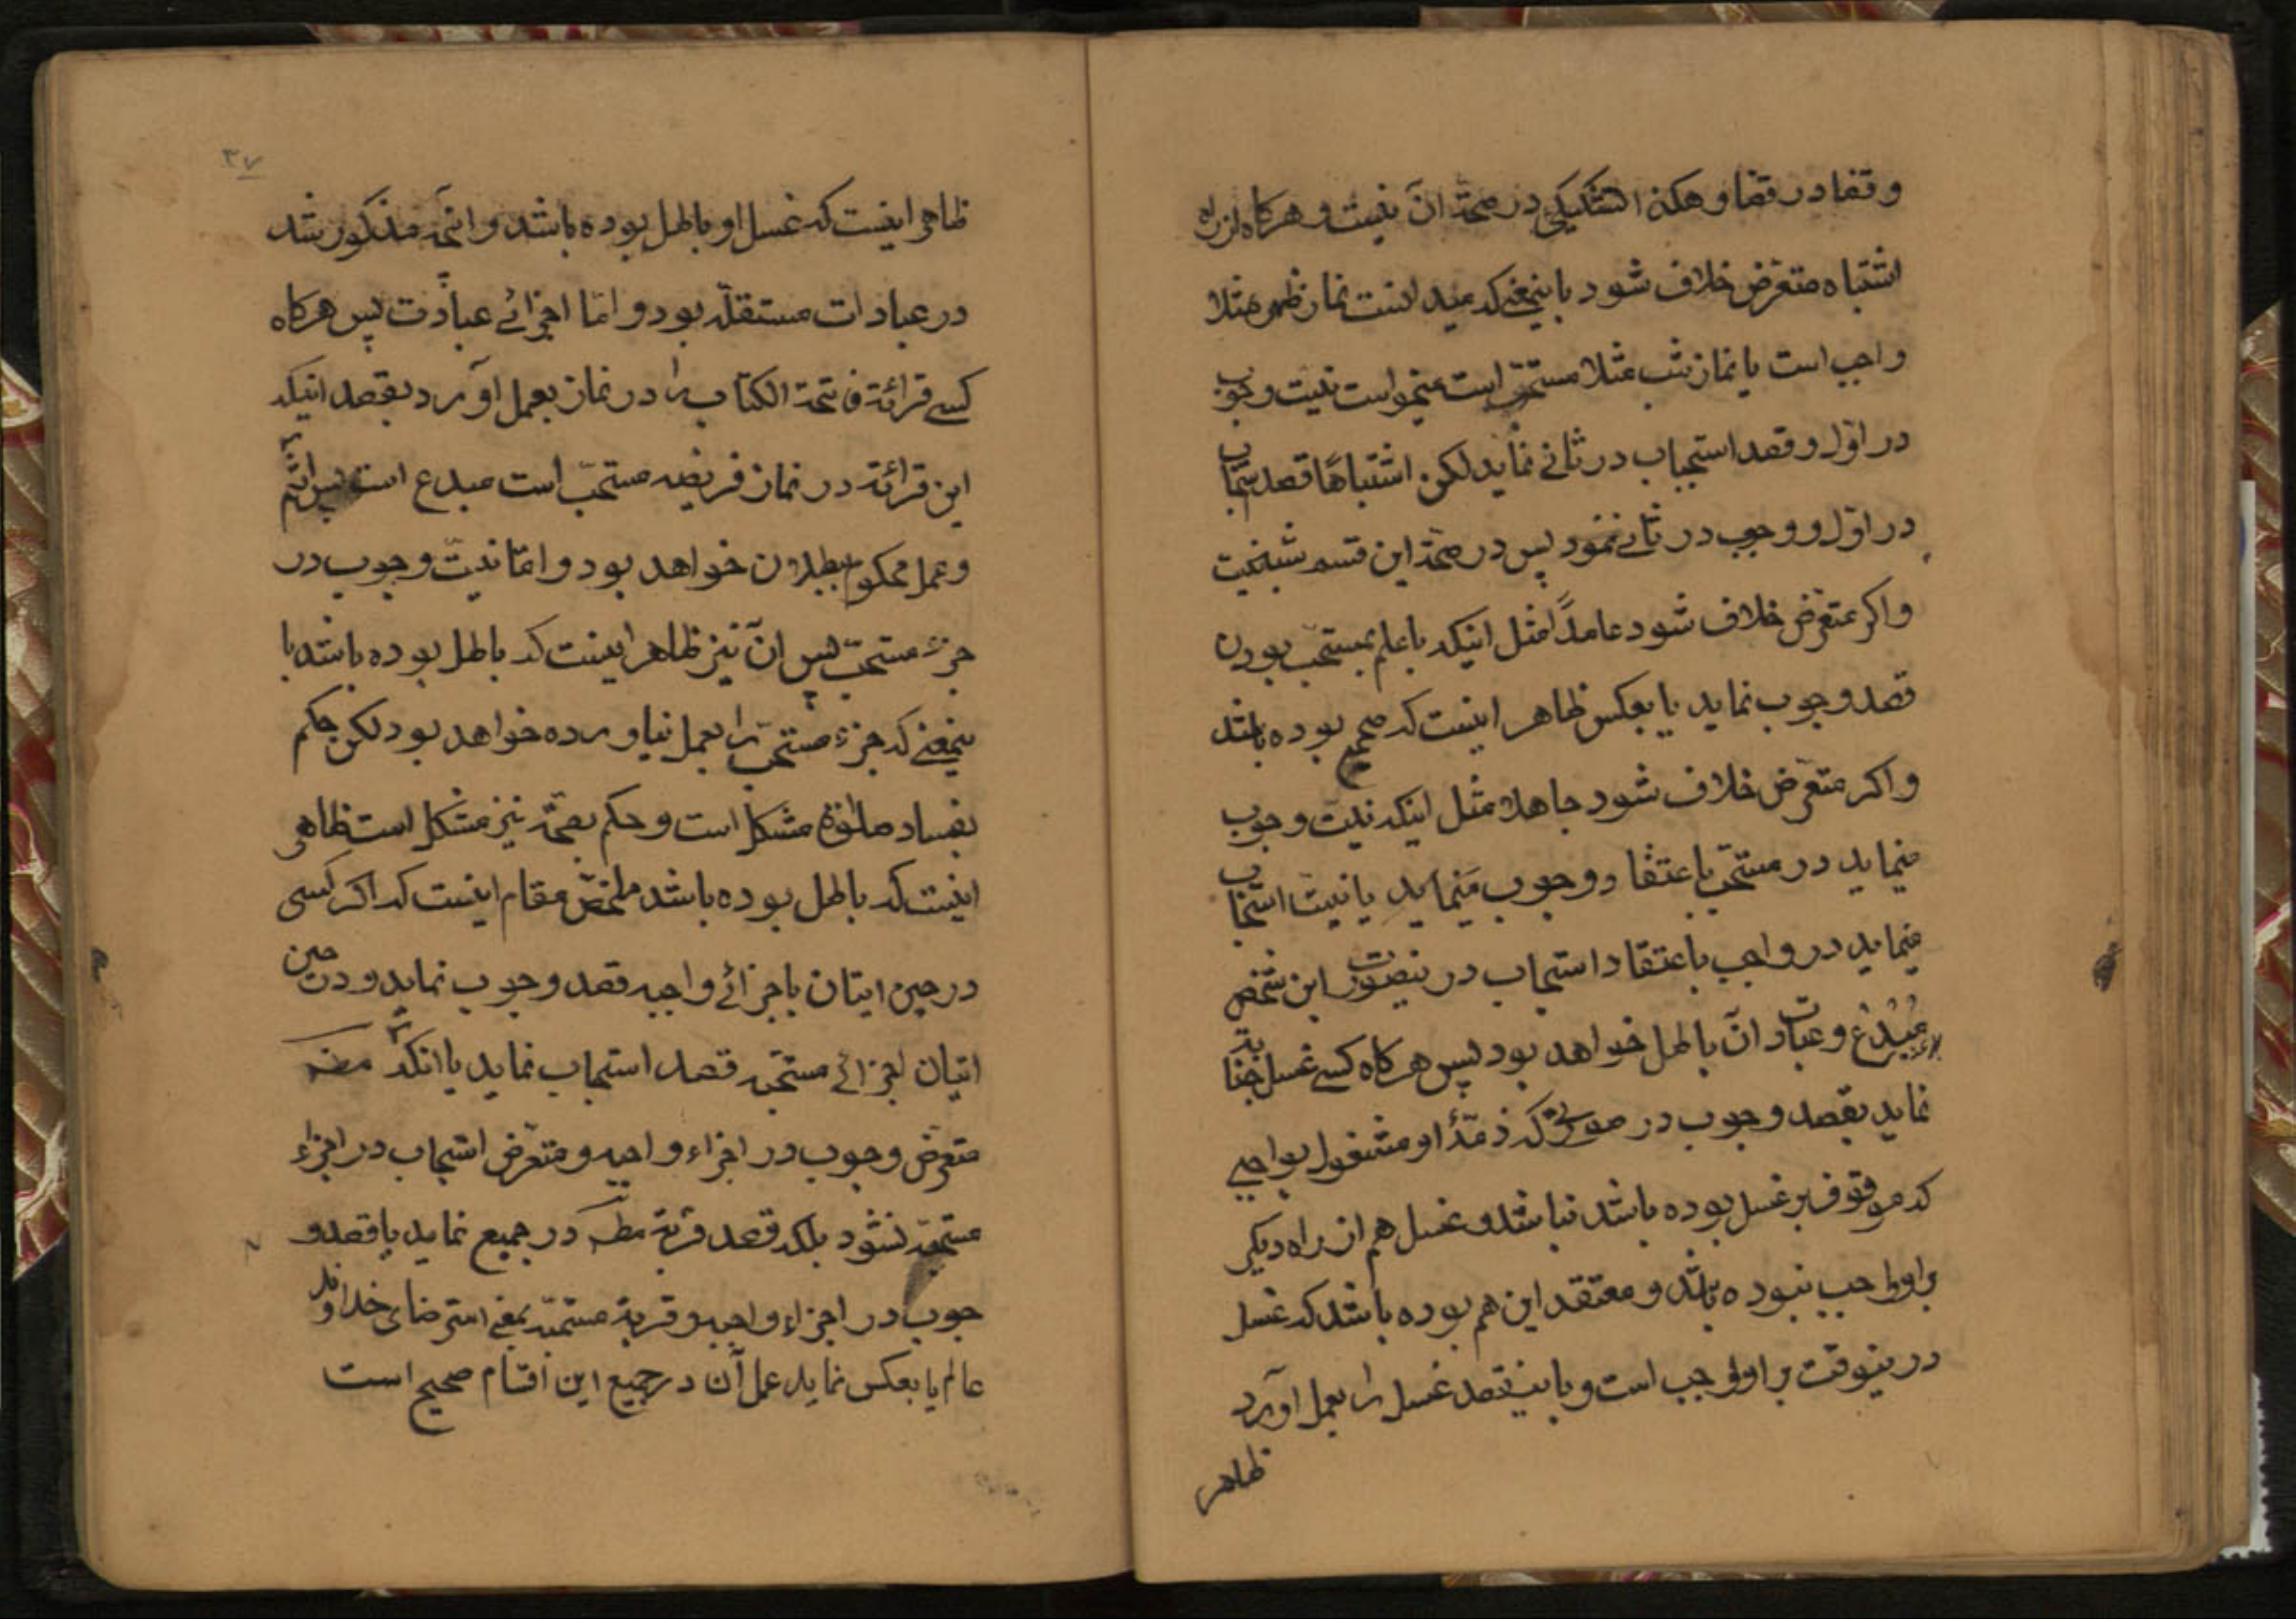 و قضا در قضا و هکذا شکی در صحة ان نیست و هرکاه از راه
اشتباه متعرض خلاف شود باینمعنی که میدانست نماز ظهر مثلا
واجب است یا نماز شب مثلا مستحبّ است میخواست نیت وجوب
در اوّل و قصد استحباب در ثانی نماید لکن اشتباهًا قصد استحباب
در اوّل و وجوب در ثانی نمود پس در صحّة این قسم شبه نیست
و اکر متعرّض خلاف شود عامدًا مثل اینکه با علم بمستحبّ بودن
قصد وجوب نماید یا بعکس ظاهر اینست که صحیح بوده باشد
و اکر متعرّض خلاف شود جاهلا مثل اینکه نیّت وجوب
مینماید در مستحبّ باعتقاد وجوب مینماید یا نیّت استحباب
مینماید در واجب باعتقاد استحباب در ینصورت این شخص
مُبْدِع و عبادت ان باطل خواهد بود پس هرکاه کسے غسل جنابة
نماید بقصد وجوب در صورتی که ذمّهٔ او مشغول بواجبے
که موقوف بر غسل بوده باشد نباشد و غسل هم از راه دیکر
بر او واجب نبوده باشد و معتقد این هم بوده باشد که غسل
در ینوقت بر او واجب است و باینقصد غسل را بعمل اورد
ظاهر
۳۷
ظاهر اینست که غسل او باطل بوده باشد و انچه مذکور شد
در عبادات مستقلّه بود و امّا اجزائے عبادت پس هرکاه
کسے قرائة فاتحة الکتاب را در نماز بعمل اورد بقصد اینکه
این قرائة در نماز فریضه مستحبّ است مبدع است پس اثم
و عمل محکوم ببطلان خواهد بود و امّا نیّت وجوب در
جزء مستحبّ پس ان نیز ظاهر اینست که باطل بوده باشد با
ینمعنے که جزء مستحبّ را بعمل نیاورده خواهد بود لکن حکم
بفساد صلوٰة مشکل است و حکم بصحّة نیز مشکل است ظاهر
اینست که باطل بوده باشد ملخّص مقام اینست که اکر کسی
در حین اتیان باجزائے واجبه قصد وجوب نماید و در حین
اتیان اجزائے مستحبّه قصد استحباب نماید یا انکه
متعرّض وجوب در اجزاء واجبه و متعرّض استحباب در اجزاء
مستحبّه نشود بلکه قصد قربة در جمیع نماید یا قصد و
جوب در اجزاء واجبه و قربة مستحبّه بمعنے استرضای خداوند
عالم یا بعکس نماید عمل آن در جمیع این اقسام صحیح است